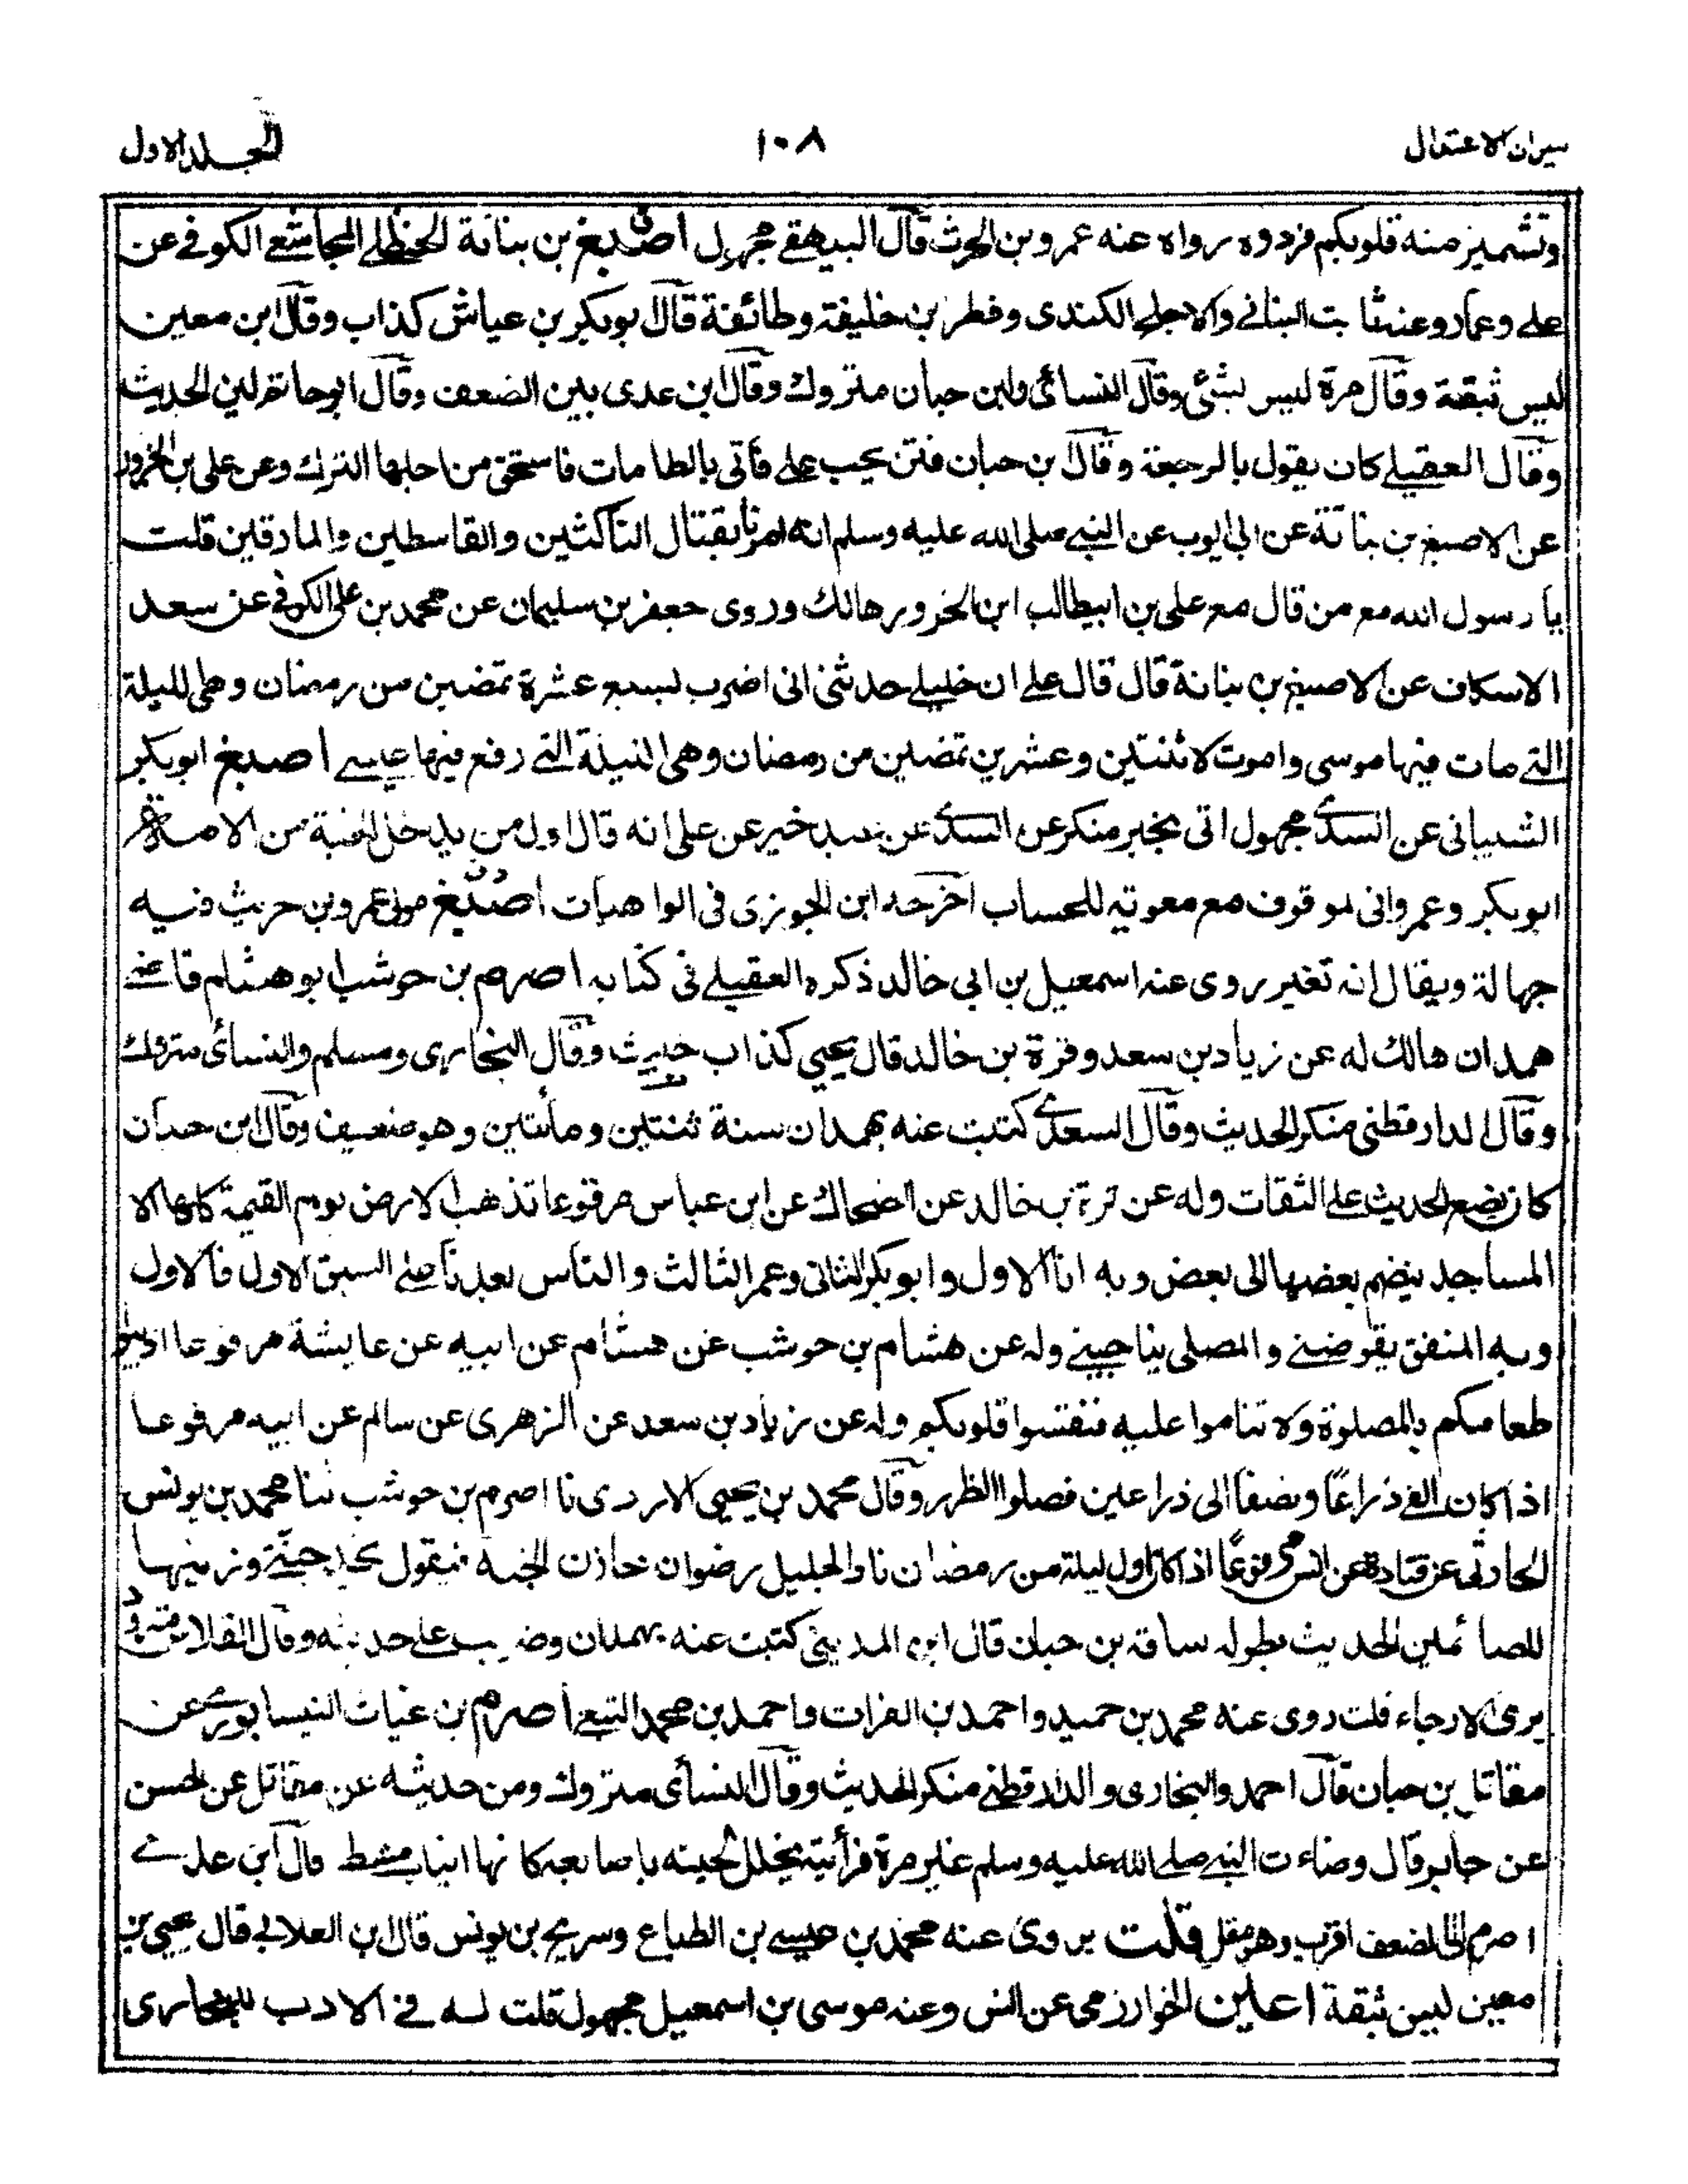 ميزان الاعتدال ١٠٨ المجلد الاول
وتشميز منه قلوبكم فردوه رواه عنه عمرو بن الحرث قال البيهقے مجهول اصبغ بن بناتة الحنظلے المجاشعے الكوفے عن
علے وعمار وعنه ثابت البنانے والاجلح الكندى وفطر بن خليفة وطائفة قال ابوبكر بن عياش كذاب وقال ابن معين
ليس بثقة وقال مرة ليس بشئ وقال النسائى وابن حبان متروك وقال ابن عدى بين الضعف وقال ابوحاتم لين الحديث
وقال العقيلے كان يقول بالرجعة وقال بن حبان فتن بحب علے فأتى بالطامات فاستحق من اجلها الترك وعن على بن الحزور
عن الاصبغ بن بناتة عن ابى ايوب عن النبے صلى الله عليه وسلم انه امرنا بقتال الناكثين والقاسطين والمارقين قلت
يا رسول الله مع من قال مع على بن ابيطالب ابن الحزور هالك وروى جعفر بن سليمان عن محمد بن على الكوفے عن سعد
الاسكاف عن الاصبغ بن بناتة قال قال علے ان خليلے حدثنى انى اضرب لسبع عشرة تمضين من رمضان وهى الليلة
التے مات فيها موسى واموت لاثنتين وعشرين تمضين من رمضان وهى الليلة التے رفع فيها عيسے اصبغ ابوبكر
الشيبانى عن السدے مجهول اتى بخبر منكر عن السدے عن عبد خير عن على انه قال اول من يدخل الجنة من الامة
ابوبكر وعمر وانى لموقوف مع معوية للحساب اخرجه ابن الجوزى فى الواهيات اصبغ مولى عمرو بن حريث فيه
جهالة ويقال انه تغير روى عنه اسمعيل بن ابى خالد ذكره العقيلے فى كتابه اصرم بن حوشب ابو هشام قاضے
همدان هالك له عن زياد بن سعد وقرة بن خالد قال يحيى كذاب خبيث وقال البخارى ومسلم والنسائى متروك
وقال الدارقطنى منكر الحديث وقال السعدے كتبت عنه بهمدان سنة ثنتين ومأتين وهو ضعيف وقال ابن حبان
كان يضع الحديث على الثقات وله عن قرة بن خالد عن الضحاك عن ابن عباس مرفوعا تذهب الارض يوم القيمة كلها الا
المساجد ينضم بعضها الى بعض وبه انا الاول وابوبكر الثانى وعمر الثالث والناس بعدنا على السبق الاول فالاول
وبه المنفق يقرضنے والمصلى يناجينے وله عن هشام بن حوشب عن هشام عن ابيه عن عايشة مرفوعا اذيبوا
طعامكم بالصلوة ولا تناموا عليه فتقسوا قلوبكم وله عن زياد بن سعد عن الزهرى عن سالم عن ابيه مرفوعا
اذا كان الفئ ذراعًا ونصفا الى ذراعين فصلوا الظهر وقال محمد بن يحيى الازدى نا اصرم بن حوشب ثنا محمد بن يونس
الحارثى عن قتادة عن انس مرفوعًا اذا كان اول ليلة من رمضان نادا الجليل رضوان خازن الجنة فيقول نجد جنتے وزينها
للصائمين الحديث بطوله ساقه بن حبان قال ابن المدينى كتبت عنه بهمدان وضربت على حديثه وقال الفلاس متروك
يرى الارجاء قلت روى عنه محمد بن حميد واحمد بن الفرات واحمد بن محمد التبعے اصرم بن غياث النيسابورے عن
مقاتل بن حبان قال احمد والبخارى والدارقطنے منكر الحديث وقال النسائى متروك ومن حديثه عن مقاتل عن الحسن
عن جابر قال وضاءت النبے صلے الله عليه وسلم غير مرة فرأيته يخلل لحيته باصابعه كانها انياب مشط قال ابن عدے
اصرم الى الضعف اقرب وهو مقل قلت يروى عنه محمد بن عيسے بن الطباع وسريج بن يونس قال ابن العلابى قال يحيى بن
معين ليس بثقة اعين الخوارزمى عن انس وعنه موسى بن اسمعيل مجهول قلت له فے الادب للبخارى